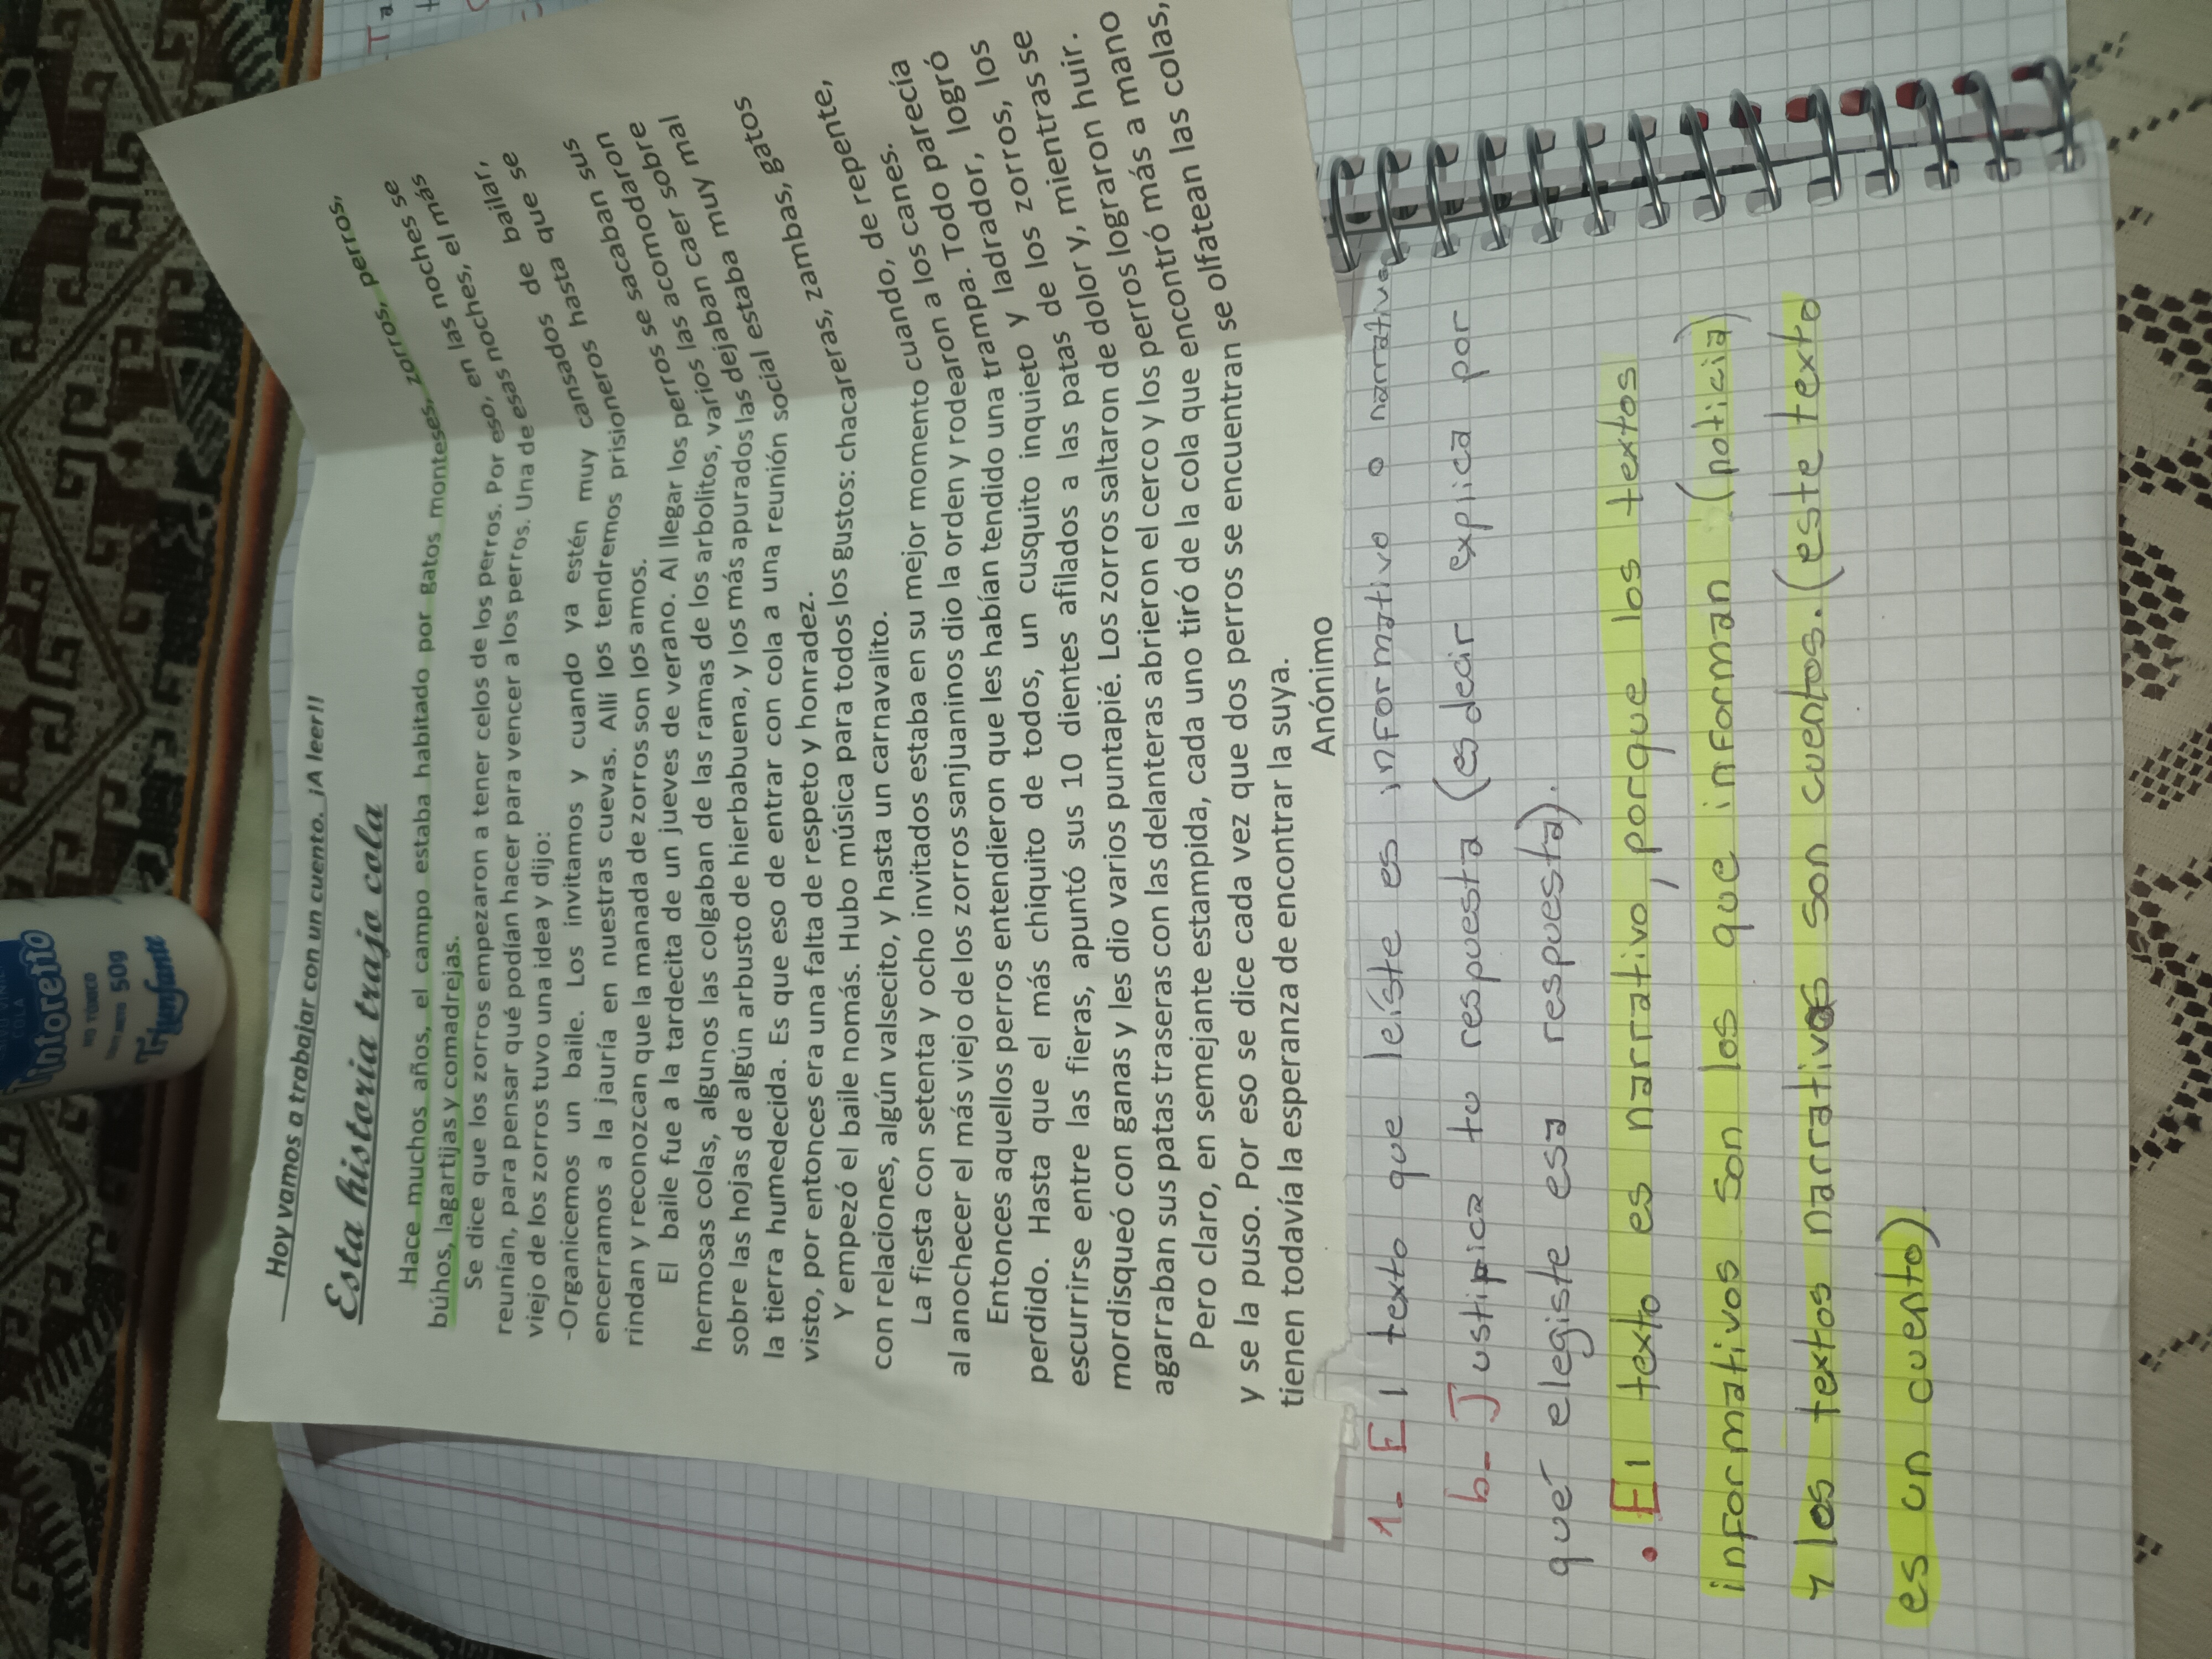 Hoy vamos a trabajar con un cuento. ¡A leer!!
Esta historia trajo cola
Hace muchos años, el campo estaba habitado por gatos monteses, zorros, perros,
búhos, lagartijas y comadrejas.
Se dice que los zorros empezaron a tener celos de los perros. Por eso, en las noches se
reunían, para pensar qué podían hacer para vencer a los perros. Una de esas noches, el más
viejo de los zorros tuvo una idea y dijo:
-Organicemos un baile. Los invitamos y cuando ya estén muy cansados de bailar,
encerramos a la jauría en nuestras cuevas. Allí los tendremos prisioneros hasta que se
rindan y reconozcan que la manada de zorros son los amos.
El baile fue a la tardecita de un jueves de verano. Al llegar los perros se sacaban sus
hermosas colas, algunos las colgaban de las ramas de los arbolitos, varios las acomodaron
sobre las hojas de algún arbusto de hierbabuena, y los más apurados las dejaban caer sobre
la tierra humedecida. Es que eso de entrar con cola a una reunión social estaba muy mal
visto, por entonces era una falta de respeto y honradez.
Y empezó el baile nomás. Hubo música para todos los gustos: chacareras, zambas, gatos
con relaciones, algún valsecito, y hasta un carnavalito.
La fiesta con setenta y ocho invitados estaba en su mejor momento cuando, de repente,
al anochecer el más viejo de los zorros sanjuaninos dio la orden y rodearon a los canes.
Entonces aquellos perros entendieron que les habían tendido una trampa. Todo parecía
perdido. Hasta que el más chiquito de todos, un cusquito inquieto y ladrador, logró
escurrirse entre las fieras, apuntó sus 10 dientes afilados a las patas de los zorros, los
mordisqueó con ganas y les dio varios puntapié. Los zorros saltaron de dolor y, mientras se
agarraban sus patas traseras con las delanteras abrieron el cerco y los perros lograron huir.
Pero claro, en semejante estampida, cada uno tiró de la cola que encontró más a mano
y se la puso. Por eso se dice cada vez que dos perros se encuentran se olfatean las colas,
tienen todavía la esperanza de encontrar la suya.
Anónimo
1- El texto que leíste es informativo o narrativo
b- Justifica tu respuesta (es decir explica por
qué elegiste esa respuesta).
• El texto es narrativo, porque los textos
informativos son los que informan (noticia)
y los textos narrativos son cuentos. (este texto
es un cuento)
Tintoretto
COLA
NO TÓXICO
50g
Triunfante